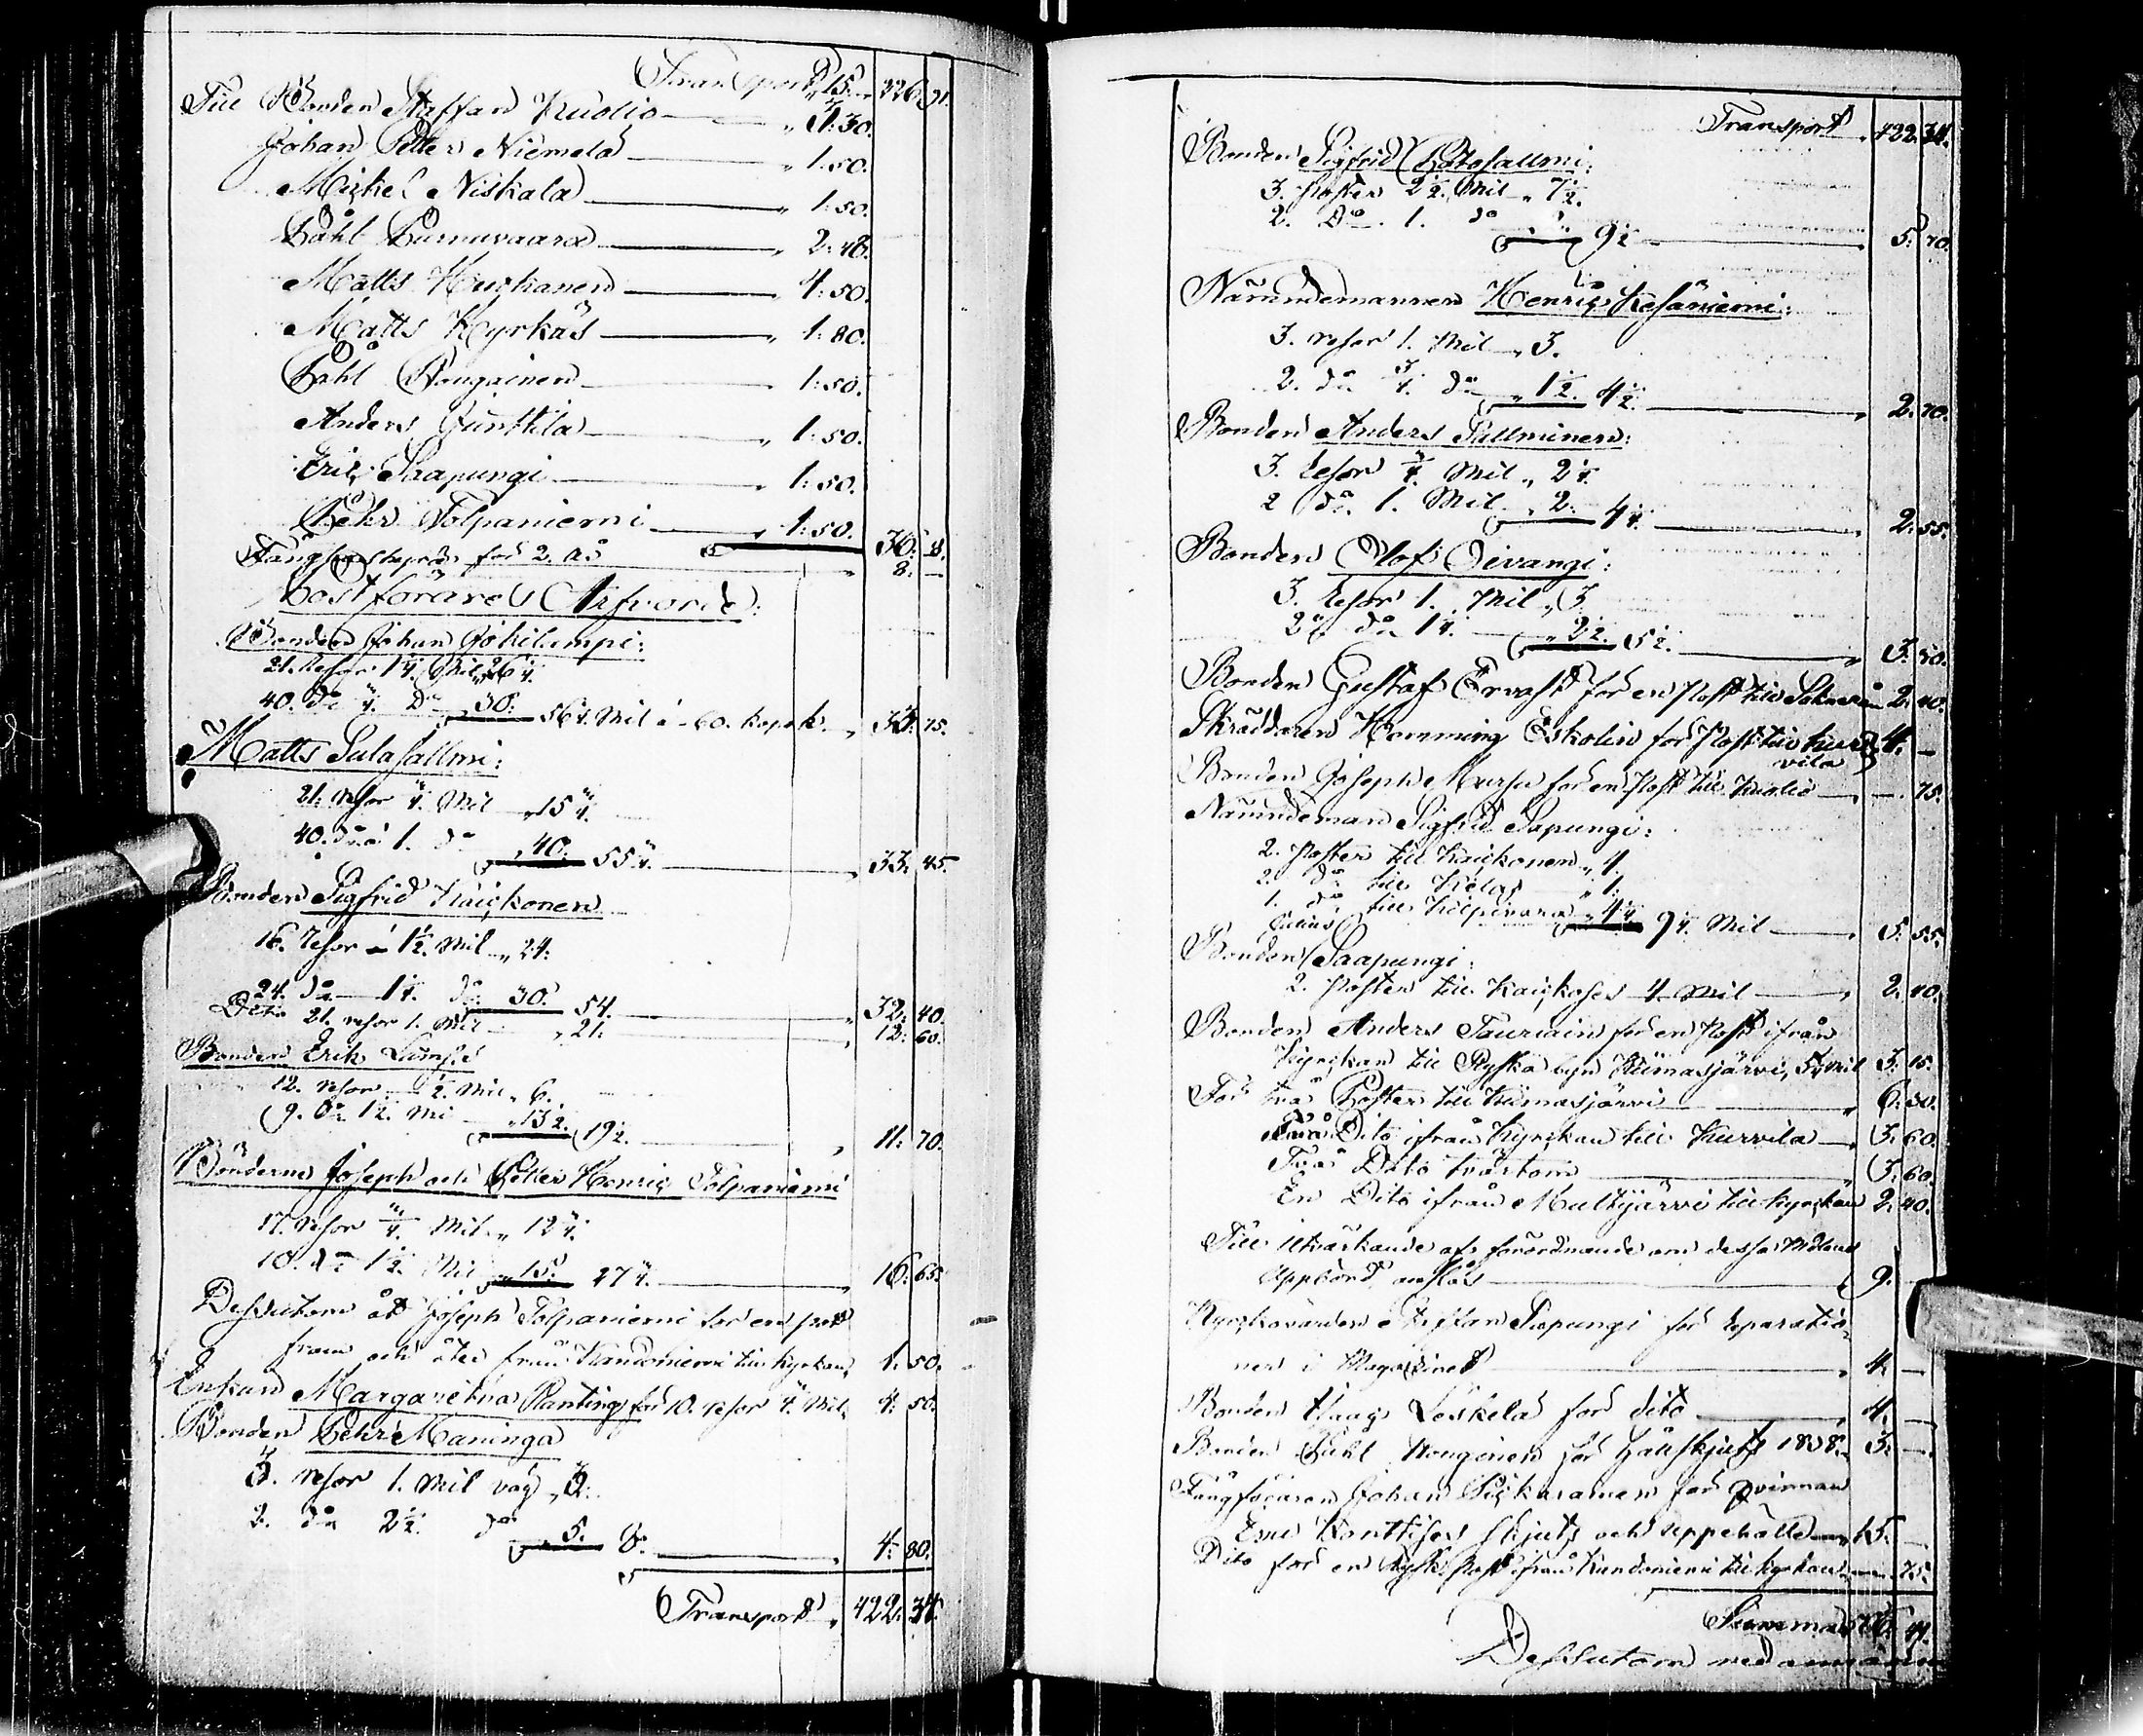 Transport 15 226 91.
Till Bonden Staffan Kuolio 1:30.
Johan Petter Niemelä 1:50.
Michel Niskala 1:50.
Påhl Purnuvaara 2:48.
Matts Huckanen 4:50.
Matts Kyrkäs 1:80.
Påhl Rougainen 1:50.
Anders Junttila 1:50.
Eric Saapungi 1:50.
Pehr Tolpaniemi 1:50. 36: 8.
för 2. år 8: —
Postförare Arfvode:
Bonden Johan Jokilampi:
21. Resor 1¼ Mil 26¼.
40. do ¾. Do 30. 56¼. Mil à 60. kopek. 33: 75.
Matts Sulasallmi:
21. resor ¾. Mil 15¾.
40. do à 1. do 40. 55¾. 33: 45.
Bonden Sigfrid Kaickonen
16. resor à 1½. Mil 24.
24. do 1¼. do 30. 54. 32: 40.
Dito 21. resor 1. Mil 21. 12: 60.
Bonden Erik Lämsä
12. resor ½. Mil 6.
9. do 1½. Mil 13½. 19½. 11: 70.
Bönderne Joseph och Petter Henric Tolpaniemi
17. resor ¾. Mil 12¾.
10. do 1½. Mil 15. 27¾. 16: 65.
Dessutom åt Joseph Tolpaniemi för en post
fram och åter från Kandoniemi till Kyrkan, 1: 50.
Enkan Margaretha Planting för 10. resor ¾. Mil 4: 50.
Bonden Pehr Maninga
3. resor 1. Mil väg 3.
2. do 2½. do 5. 8. 4: 80.
Transport 422: 34.
Transport 422: 34.
Bonden Sigfrid Patosallmi:
3. Poster 2½. Mil 7½.
2. Do 1. do 2. 9½ 5: 70.
Nämndemannen Henric Kesäniemi:
3. resor 1. Mil 3.
2. do ¾. do 1½. 4½. 2: 70.
Bonden Anders Sallminen:
3. resor ¾ Mil 2¼.
2 do 1. Mil 2. 4¼. 2: 55.
Bonden Olof Oivangi:
3. resor 1. Mil 3.
2 do 1¼. 2½. 5½. 3: 30.
Bonden Gustaf Ervast för en Post till 2: 40.
Skräddaren Hemming Eskolin för Post till Kur 4: —
vila
Bonden Joseph Mursu för en Post till Kuolio — 75.
Nämndeman Sigfrid Sapungi:
2. Poster till Kaickonen 4.
2. do till Kelas 1.
1. do till Kilpivara 4¼ 9¼. Mil 5: 55.
Julius
Bonden Saapungi:
2. Poster till Kaickoses 4. Mil 2: 40.
Bonden Anders Tauriain för en Post ifrån
Kyrckan till Ryska byn Kiimasjärvi, 5¼ Mil 3: 15.
För två Poster till Kiimasjärvi 6: 30.
Två Dito ifrån Kyrckan till Kurvila 3: 60.
Två Dito tvärtom 3: 60.
En Dito ifrån Multijärvi till Kyrckan 2: 40.
Till utvärkande af förordnande om dessa Medels
Uppbörd anslås 9. —
Kyrckovärden Steffan Sapungi för reparatio-
ner i Magasinet 4. —
Bonden Isaac Leskelä för dito 4. —
Bonden Påhl Rouginen för Hållskjuts 1838. 3: —
Fångförаren Johan Pickarainen för Qvinnan
Kanttisos skjuts och uppehälle 15. —
Dito för en Rysk Post ifrån Kandoniemi till Kyrkan — 75.
Summa
Dessutom